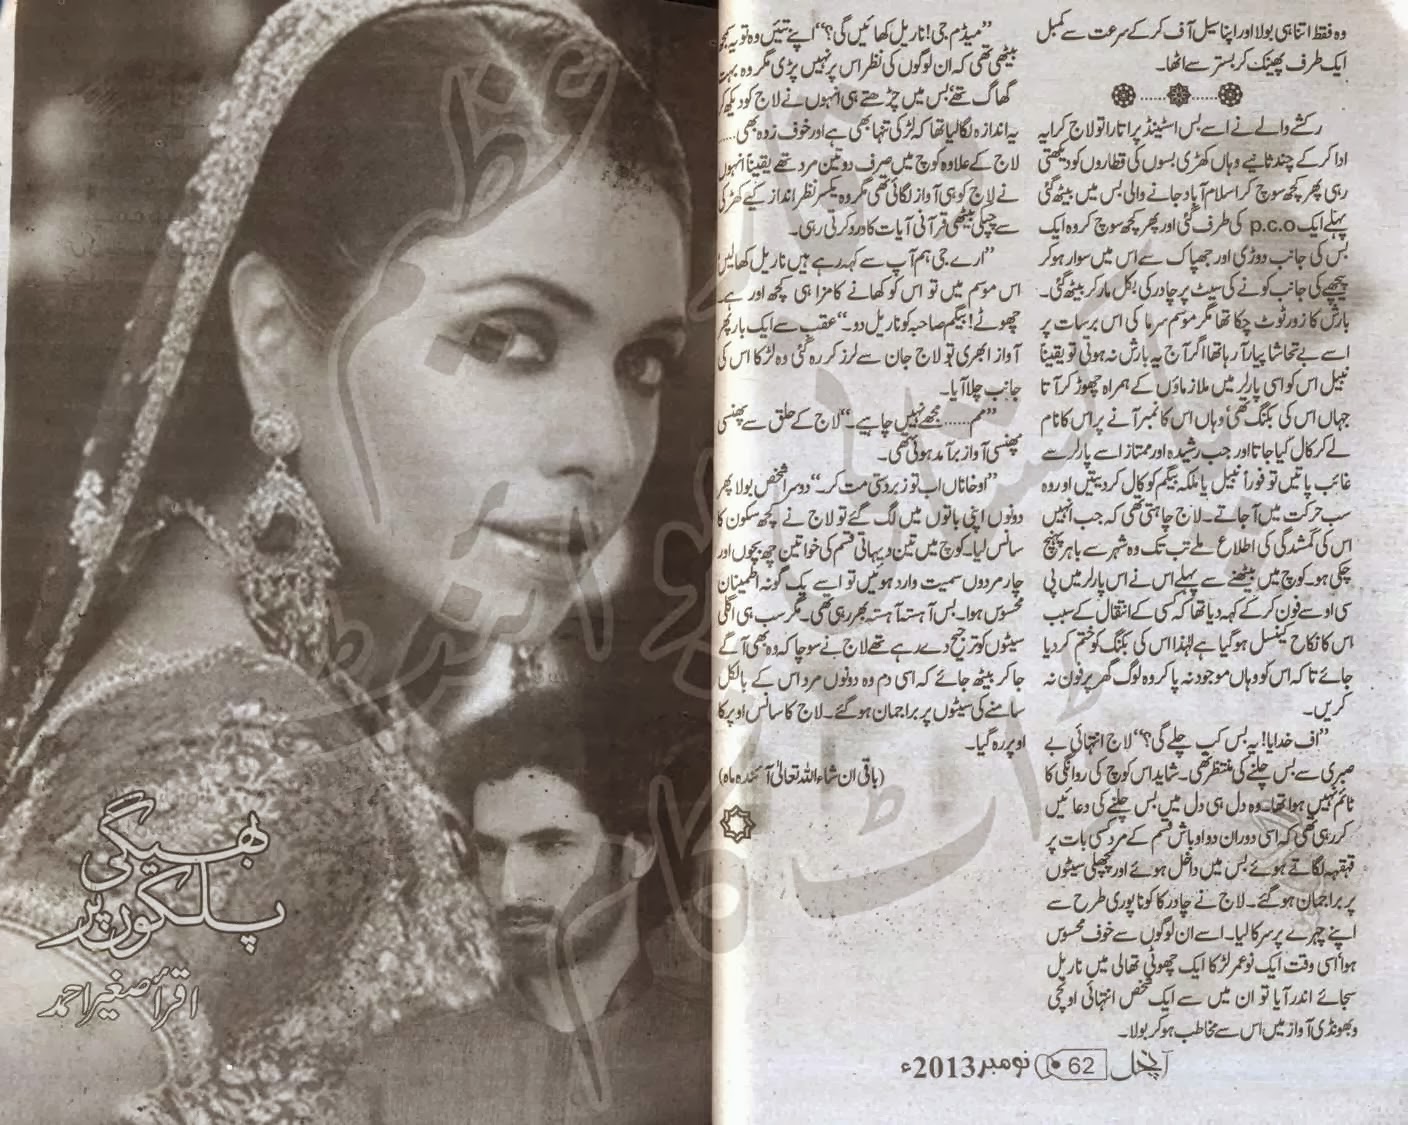 وہ فقط اتنا ہی بولا اور اپنا سیل آف کر کے سرعت سے کمبل
ایک طرف پھینک کر بستر سے اٹھا۔
رکشے والے نے اسے بس اسٹینڈ پر اتارا تو لاج کرایہ
ادا کر کے چند ثانیے وہاں کھڑی بسوں کی قطاروں کو دیکھتی
رہی پھر کچھ سوچ کر اسلام آباد جانے والی بس میں بیٹھ گئی
پہلے ایک p.c.o کی طرف گئی اور پھر کچھ سوچ کر وہ ایک
بس کی جانب دوڑی اور جھپاک سے اس میں سوار ہو کر
پیچھے کی جانب کونے کی سیٹ پر چادر کی بکل مار کر بیٹھ گئی۔
بارش کا زور ٹوٹ چکا تھا مگر موسم سرما کی اس برسات پر
اسے بے تحاشا پیار آرہا تھا اگر آج یہ بارش نہ ہوتی تو یقیناً
نبیل اس کو اسی پارلر میں ملازماؤں کے ہمراہ چھوڑ کر آتا
جہاں اس کی بکنگ تھی، وہاں اس کا نمبر آنے پر اس کا نام
لے کر کال کیا جاتا اور جب رشیدہ اور ممتاز اسے پارلر سے
غائب پاتیں تو فوراً نبیل یا ملکہ بیگم کو کال کر دیتیں اور وہ
سب حرکت میں آجاتے۔ لاج چاہتی تھی کہ جب انہیں
اس کی گمشدگی کی اطلاع ملے تب تک وہ شہر سے باہر پہنچ
چکی ہو۔ کوچ میں بیٹھنے سے پہلے اس نے اس پارلر میں پی
سی او سے فون کر کے کہہ دیا تھا کہ کسی کے انتقال کے سبب
اس کا نکاح کینسل ہو گیا ہے لہٰذا اس کی بکنگ کو ختم کر دیا
جائے تا کہ اس کو وہاں موجود نہ پا کر وہ لوگ گھر پر فون نہ
کریں۔
”اف خدایا! یہ بس کب چلے گی؟“ لاج انتہائی بے
صبری سے بس چلنے کی منتظر تھی۔ شاید اس کوچ کی روانگی کا
ٹائم نہیں ہوا تھا۔ وہ دل ہی دل میں بس چلنے کی دعائیں
کر رہی تھی کہ اسی دوران دو اوباش قسم کے مرد کسی بات پر
قہقہہ لگاتے ہوئے بس میں داخل ہوئے اور پچھلی سیٹوں
پر براجمان ہو گئے۔ لاج نے چادر کا کونا پوری طرح سے
اپنے چہرے پر سرکا لیا۔ اسے ان لوگوں سے خوف محسوس
ہوا، اسی وقت ایک نو عمر لڑکا ایک چھوٹی تھالی میں ناریل
سجائے اندر آیا تو ان میں سے ایک شخص انتہائی اونچی
و بھونڈی آواز میں اس سے مخاطب ہو کر بولا۔
”میڈم جی! ناریل کھائیں گی؟“ اپنے تئیں وہ تو یہ سمجھ
بیٹھی تھی کہ ان لوگوں کی نظر اس پر نہیں پڑی مگر وہ بہت
گھاگ تھے، بس میں چڑھتے ہی انہوں نے لاج کو دیکھ کر
یہ اندازہ لگا لیا تھا کہ لڑکی تنہا بھی ہے اور خوف زدہ بھی......
لاج کے علاوہ کوچ میں صرف دو تین مرد تھے یقیناً انہوں
نے لاج کو ہی آواز لگائی تھی مگر وہ یکسر نظر انداز کیے کھڑکی
سے چپکی بیٹھی قرآنی آیات کا ورد کرتی رہی۔
”ارے جی ہم آپ سے کہہ رہے ہیں ناریل کھالیں
اس موسم میں تو اس کو کھانے کا مزا ہی کچھ اور ہے۔
چھوٹے! بیگم صاحبہ کو ناریل دو۔“ عقب سے ایک بار پھر
آواز ابھری تو لاج جان سے لرز کر رہ گئی وہ لڑکا اس کی
جانب چلا آیا۔
”مم...... مجھے نہیں چاہیے۔“ لاج کے حلق سے پھنسی
پھنسی آواز برآمد ہوئی تھی۔
”او خاناں اب تو زبردستی مت کر۔“ دوسرا شخص بولا پھر
دونوں اپنی باتوں میں لگ گئے تو لاج نے کچھ سکون کا
سانس لیا۔ کوچ میں تین دیہاتی قسم کی خواتین چھ بچوں اور
چار مردوں سمیت وارد ہوئیں تو اسے یک گونہ اطمینان
محسوس ہوا۔ بس آہستہ آہستہ بھر رہی تھی۔ مگر سب ہی اگلی
سیٹوں کو ترجیح دے رہے تھے لاج نے سوچا کہ وہ بھی آگے
جا کر بیٹھ جائے کہ اسی دم وہ دونوں مرد اس کے بالکل
سامنے کی سیٹوں پر براجمان ہو گئے۔ لاج کا سانس اوپر کا
اوپر رہ گیا۔
(باقی ان شاء اللہ تعالیٰ آئندہ ماہ)
آنچل 62 نومبر 2013ء
بھیگی
پلکوں پر
اقرأ صغیر احمد